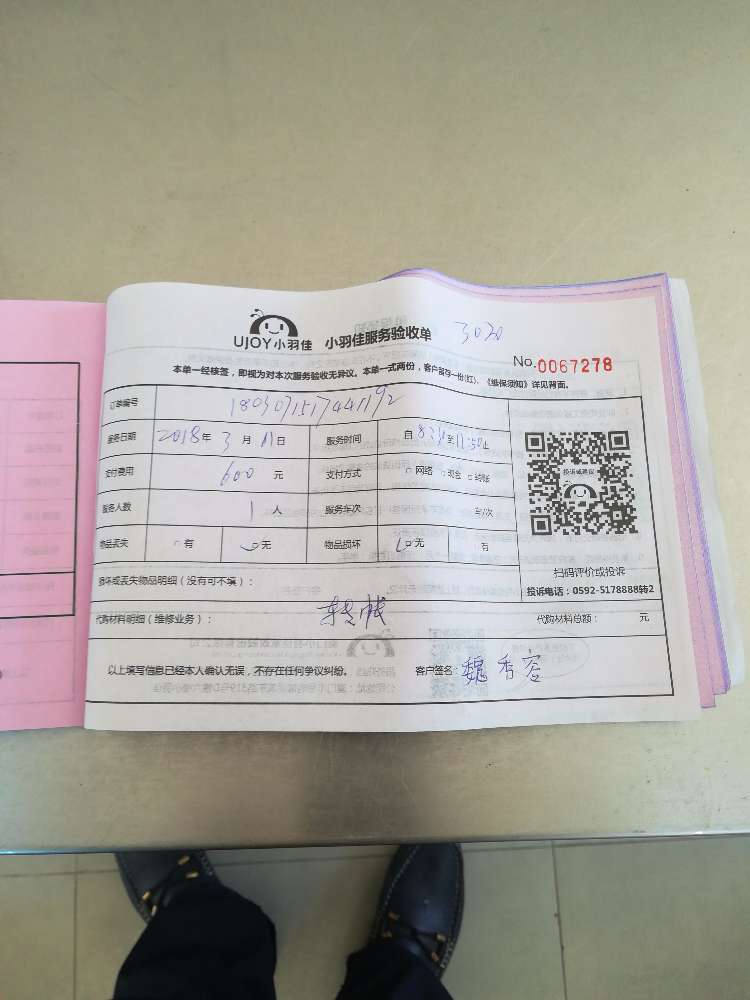 UJOY小羽佳 小羽佳服务验收单 3020
No.0067278
本单一经核签,即视为对本次服务验收无异议。本单一式两份,客户留存一份(红)。《维保须知》详见背面。
订单编号
服务日期 2018年 3月 11日 服务时间 自 至 11:50止
支付费用 600 元 支付方式 □网络 □现金 □转账
服务人数 1人 服务车次 车/次
物品丢失 □有 □无 物品损坏 □无 有
投诉或建议
扫码评价或投诉
投诉电话:0592-5178888转2
损坏或丢失物品明细(没有可不填):
代购材料明细(维修业务): 代购材料总额: 元
以上填写信息已经本人确认无误,不存在任何争议纠纷。 客户签名:魏秀容